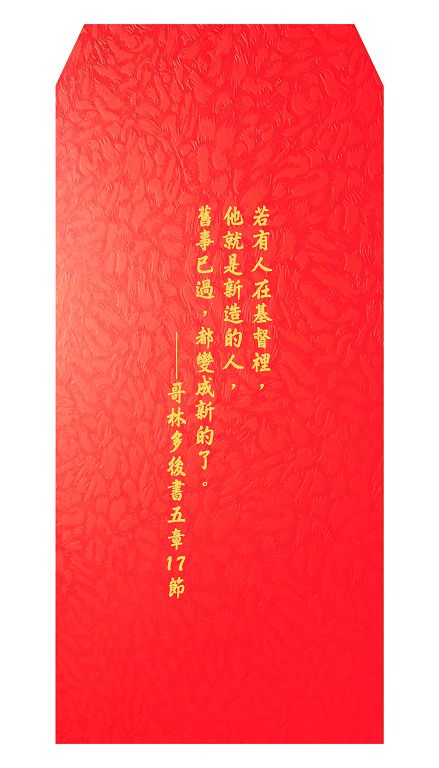 若有人在基督裡，
他就是新造的人，
舊事已過，都變成新的了。
——哥林多後書五章17節